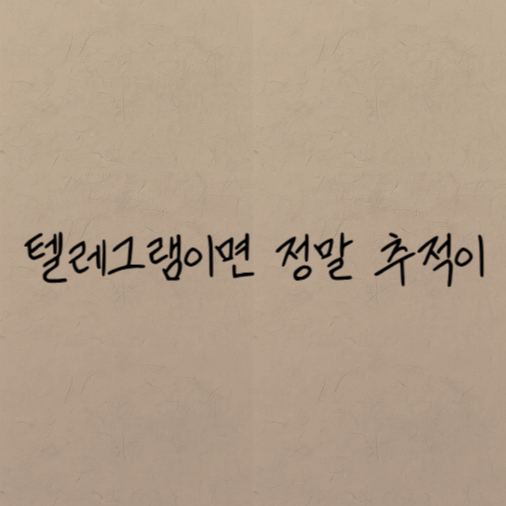 텔레그램이면 정말 추적이